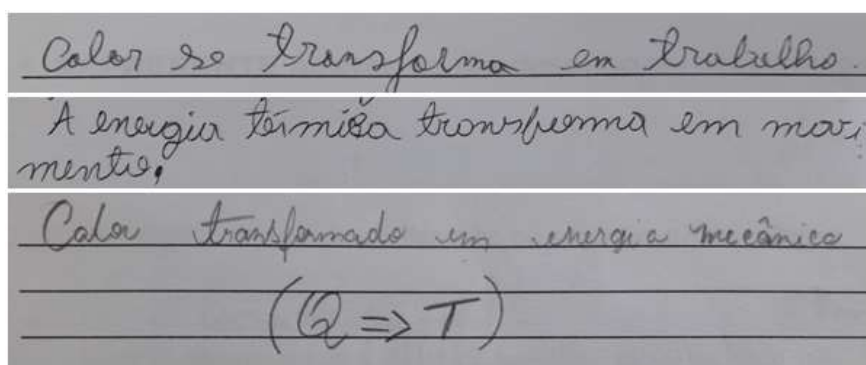 Calor se transforma em trabalho.
A energia térmica transforma em movi
mento.
Calor transformado em energia mecânica
(Q => T)